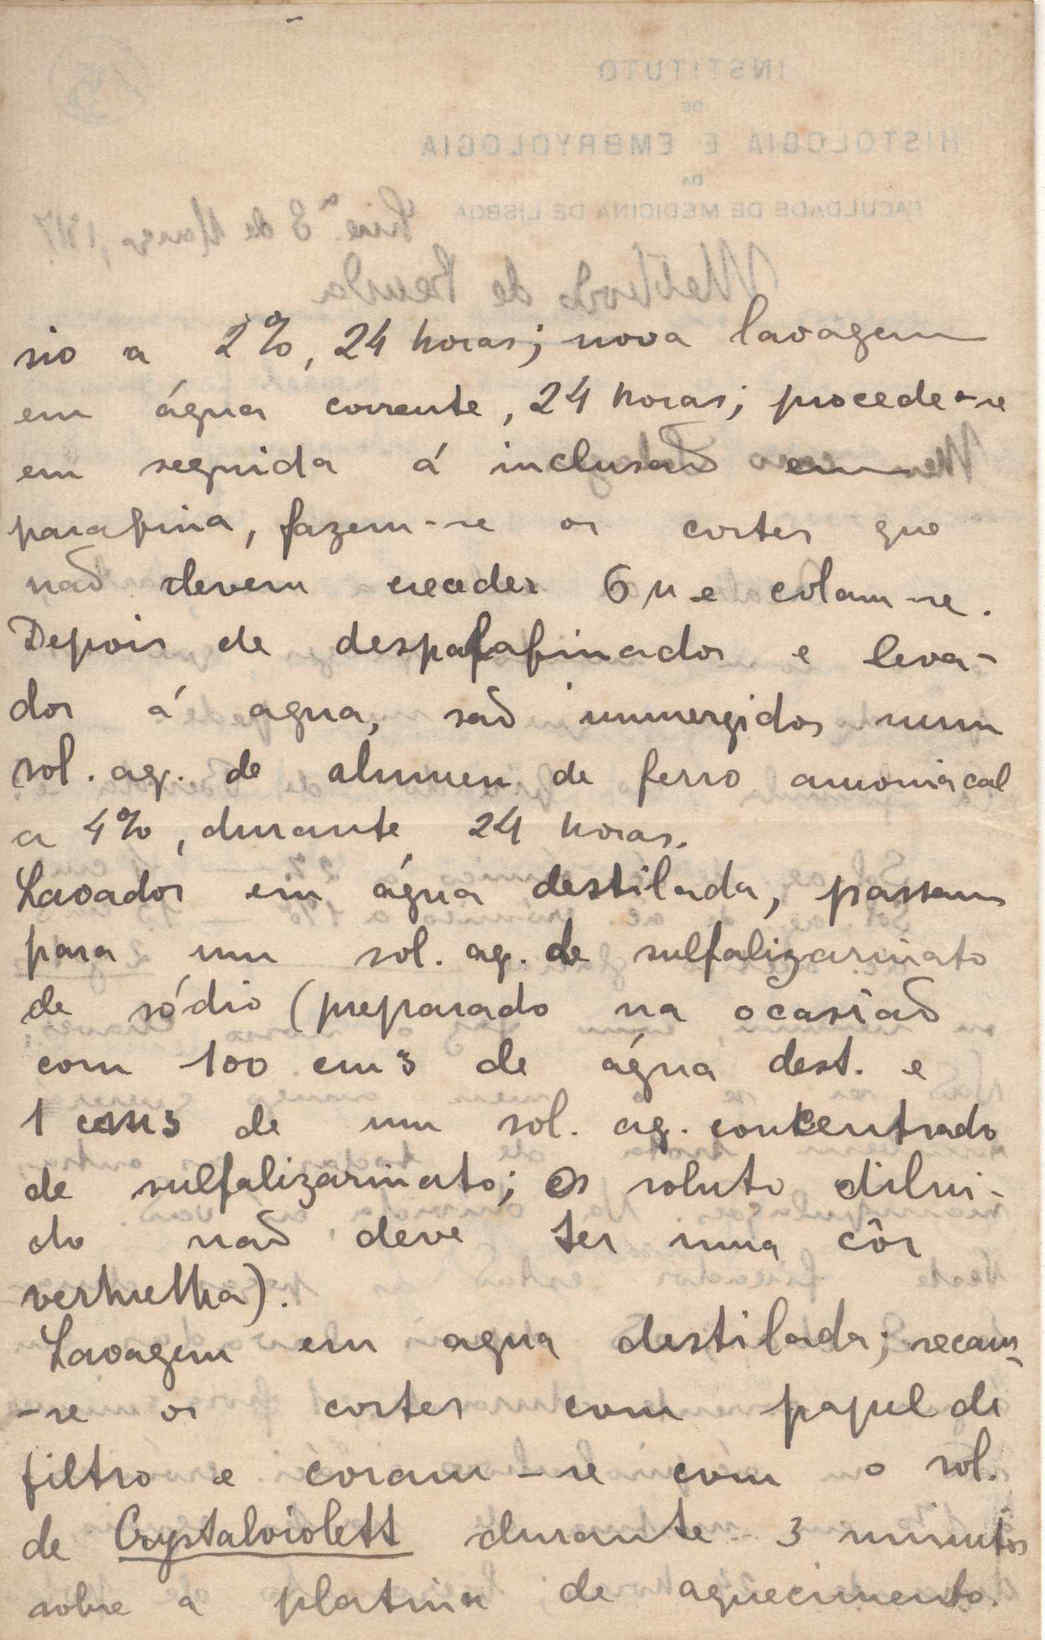 sio a 2%, 24 horas; nova lavagem
em água corrente, 24 horas; procede-se
em seguida á inclusaõ em
parafina, fazem-se os cortes que
naõ devem exceder 6 µ e colam-se.
Depois de desparafinados e leva-
dos á agua, saõ immergidos num
sol. aq. de alumen de ferro amoniacal
a 4%, durante 24 horas.
Lavados em água destilada, passam
para um sol. aq. de sulfalizarinato
de sódio (preparado na ocasiaõ
com 100 cm3 de água dest. e
1 cm3 de um sol. aq. concentrado
de sulfalizarinato; o soluto dilui-
do naõ deve ter uma côr
vermelha).
Lavagem em agua destilada; secam-
-se os cortes com papel de
filtro e coram-se com o sol.
de Crystalviolett durante 3 minutos
sobre a platina de aquecimento.
INSTITUTO
DE
HISTOLOGIA E EMBRYOLOGIA
DA
FACULDADE DE MEDICINA DE LISBOA
8 de Março, 1917
Methodo de Benda